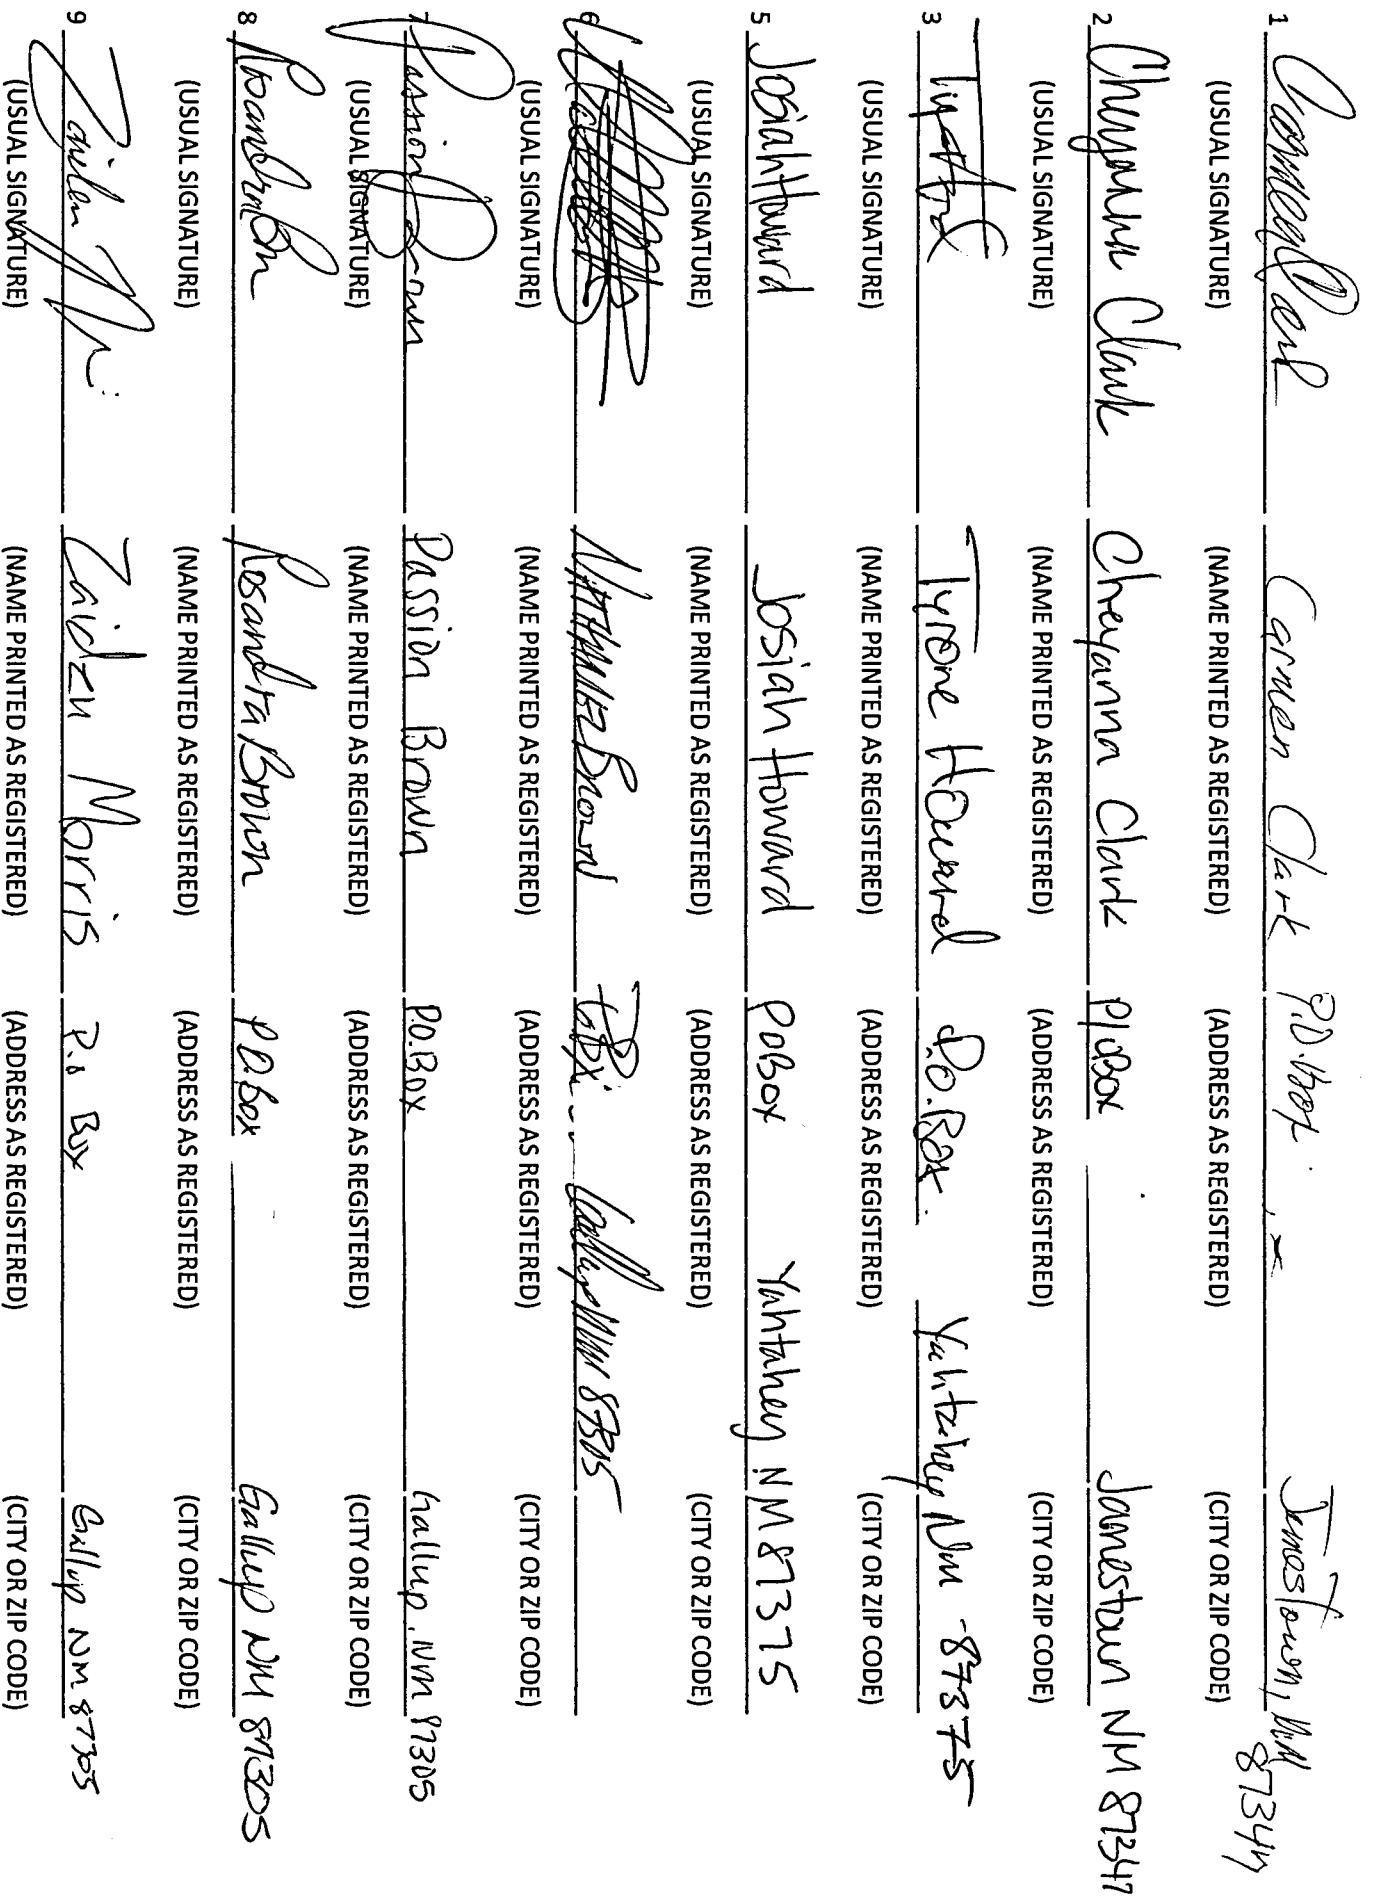 1. Carmen Clark Carmen Clark P.O. Box Jamestown, NM 87347
(USUAL SIGNATURE) (NAME PRINTED AS REGISTERED) (ADDRESS AS REGISTERED) (CITY OR ZIP CODE)
2. Cheyanna Clark Cheyanna Clark P/O BOX Jamestown NM 87347
(USUAL SIGNATURE) (NAME PRINTED AS REGISTERED) (ADDRESS AS REGISTERED) (CITY OR ZIP CODE)
3 Tyrone Howard P.O. Box Yahtahey Nm - 87375
(USUAL SIGNATURE) (NAME PRINTED AS REGISTERED) (ADDRESS AS REGISTERED) (CITY OR ZIP CODE)
5 Josiah Howard Josiah Howard PO Box Yahtahey NM 87375
(USUAL SIGNATURE) (NAME PRINTED AS REGISTERED) (ADDRESS AS REGISTERED) (CITY OR ZIP CODE)
6 Brown Gallup NM 87305
(USUAL SIGNATURE) (NAME PRINTED AS REGISTERED) (ADDRESS AS REGISTERED) (CITY OR ZIP CODE)
7 Passion Brown Passion Brown P.O. Box Gallup, Nm 87305
(USUAL SIGNATURE) (NAME PRINTED AS REGISTERED) (ADDRESS AS REGISTERED) (CITY OR ZIP CODE)
8 Rosandra Brown P.O. Box Gallup NM 87305
(USUAL SIGNATURE) (NAME PRINTED AS REGISTERED) (ADDRESS AS REGISTERED) (CITY OR ZIP CODE)
9 Zaidzn Morris P.o Box Gallup NM 87305
(USUAL SIGNATURE) (NAME PRINTED AS REGISTERED) (ADDRESS AS REGISTERED) (CITY OR ZIP CODE)